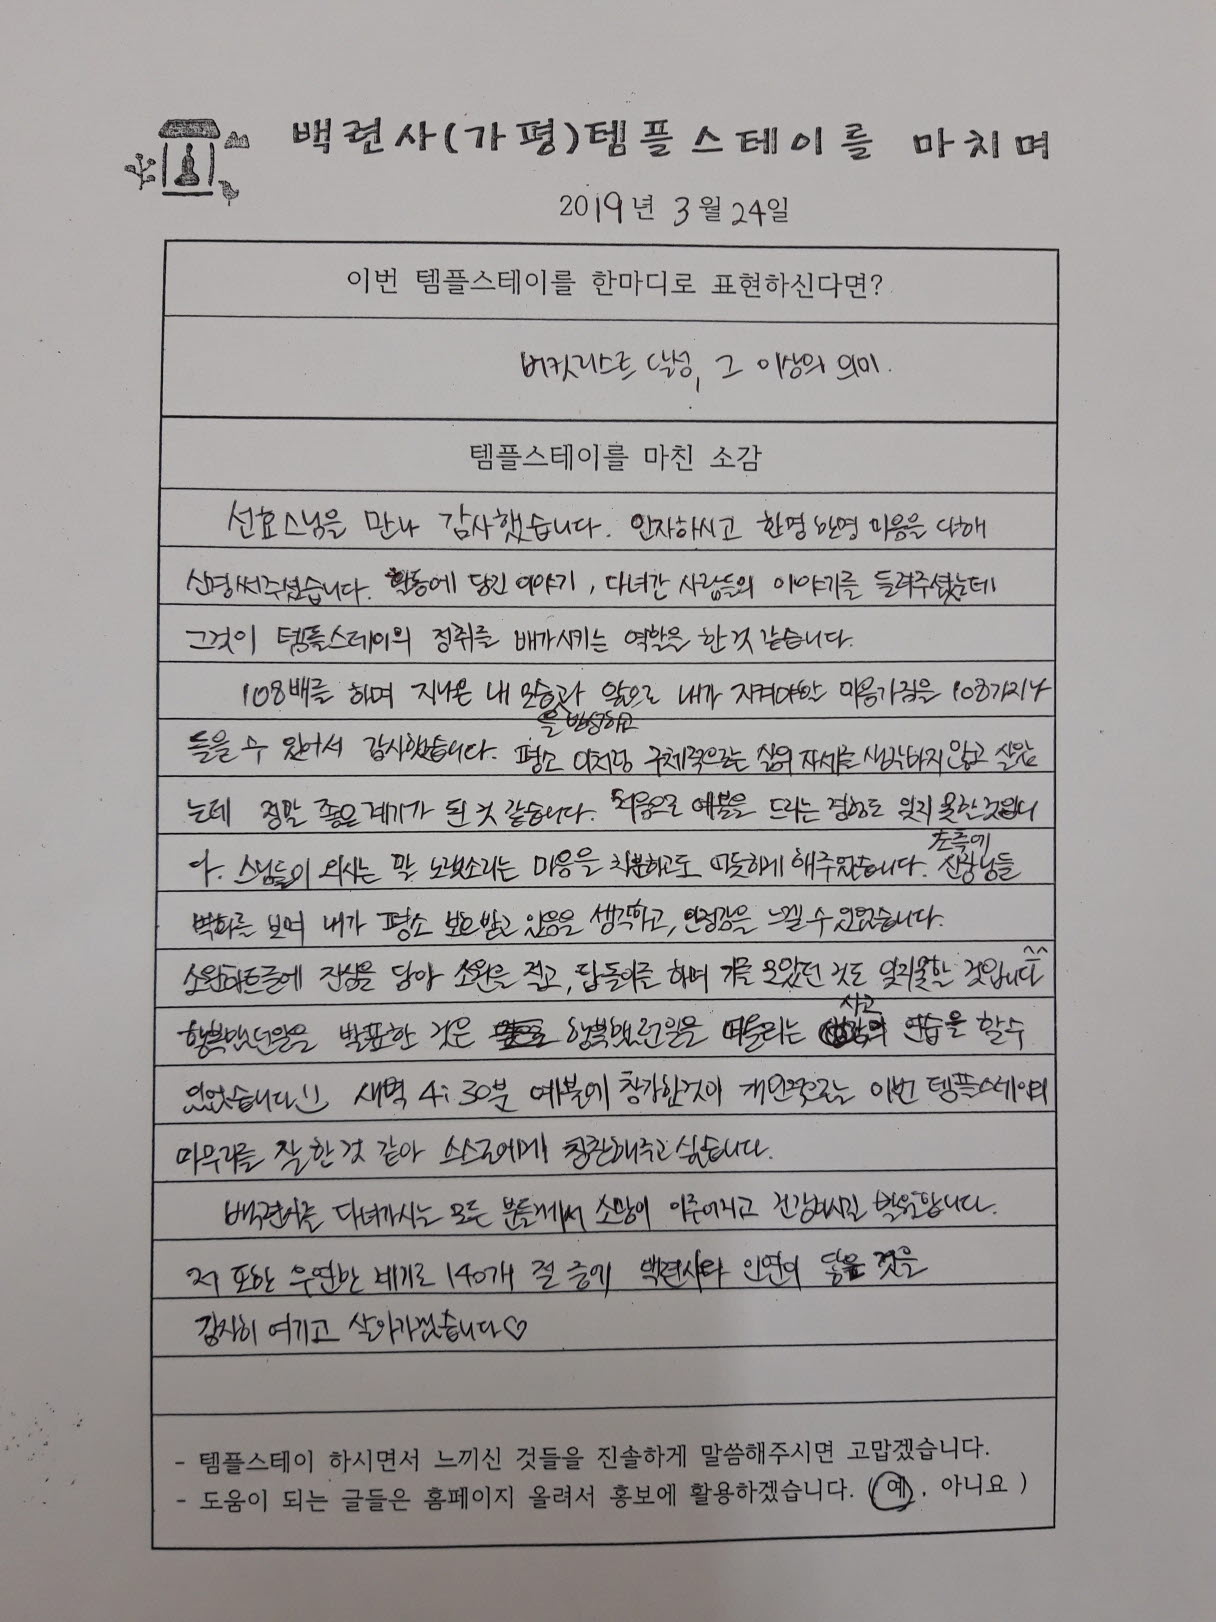 백련사(가평)템플스테이를 마치며
2019년 3월 24일
이번 템플스테이를 한마디로 표현하신다면?
버킷리스트 달성, 그 이상의 의미.
템플스테이를 마친 소감
선효스님을 만나 감사했습니다. 인자하시고 한명 한명 마음을 다해
신경써주셨습니다. 활동에 담긴 이야기, 다녀간 사람들의 이야기를 들려주셨는데
그것이 템플스테이의 정취를 배가시키는 역할을 한 것 같습니다.
108배를 하며 지나온 내 모습과 앞으로 내가 지켜야할 마음가짐을 108가지나
을 반성하고
들을 수 있어서 감사했습니다. 평소 이처럼 구체적으로는 삶의 자세를 생각하지 않고 살았
는데 정말 좋은 계기가 된 것 같습니다. 처음으로 예불을 드리는 경험도 잊지 못할 것입니
다. 스님들이 외시는 막 노랫소리는 마음을 차분하고도 따듯하게 해주었습니다.
초측에 신장님들
벽화를 보며 내가 평소 보호받고 있음을 생각하고, 안정감을 느낄 수 있었습니다.
소원하트등에 진심을 담아 소원을 적고, 탑돌이를 하며 기를 모았던 것도 잊지못할 것입니다^^
행복했던일을 발표한 것은 행복했던일을 떠올리는 사고 연습을 할 수
있었습니다:) 새벽 4:30분 예불에 참가한것이 개인적으로는 이번 템플스테이의
마무리를 잘 한 것 같아 스스로에게 칭찬해주고 싶습니다.
백련사를 다녀가시는 모든 분들께서 소망이 이루어지고 건강하시길 발원합니다.
저 또한 우연한 계기로 140개 절 중에 백련사와 인연이 닿은 것을
감사히 여기고 살아가겠습니다♡
- 템플스테이 하시면서 느끼신 것들을 진솔하게 말씀해주시면 고맙겠습니다.
- 도움이 되는 글들은 홈페이지 올려서 홍보에 활용하겠습니다. (예, 아니요 )